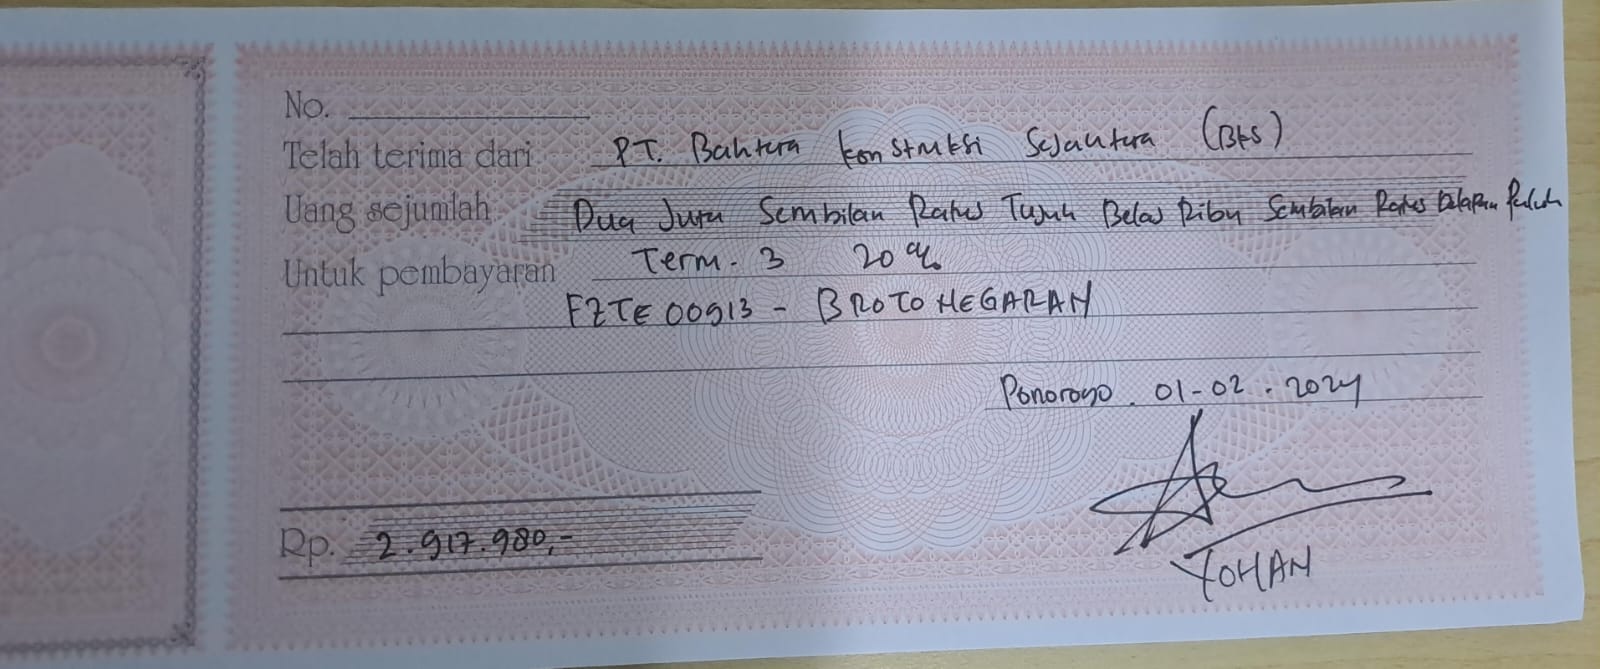 No.
Telah terima dari PT. Bahtera Konstruksi Sejahtera (BKS)
Uang sejumlah Dua Juta Sembilan Ratus Tujuh Belas Ribu Sembilan Ratus Delapan Puluh
Untuk pembayaran Term. 3 20%
FZTE 00913 - BROTONEGARAN
Ponorogo. 01-02.2024
Rp. 2.917.980,-
YOHAN